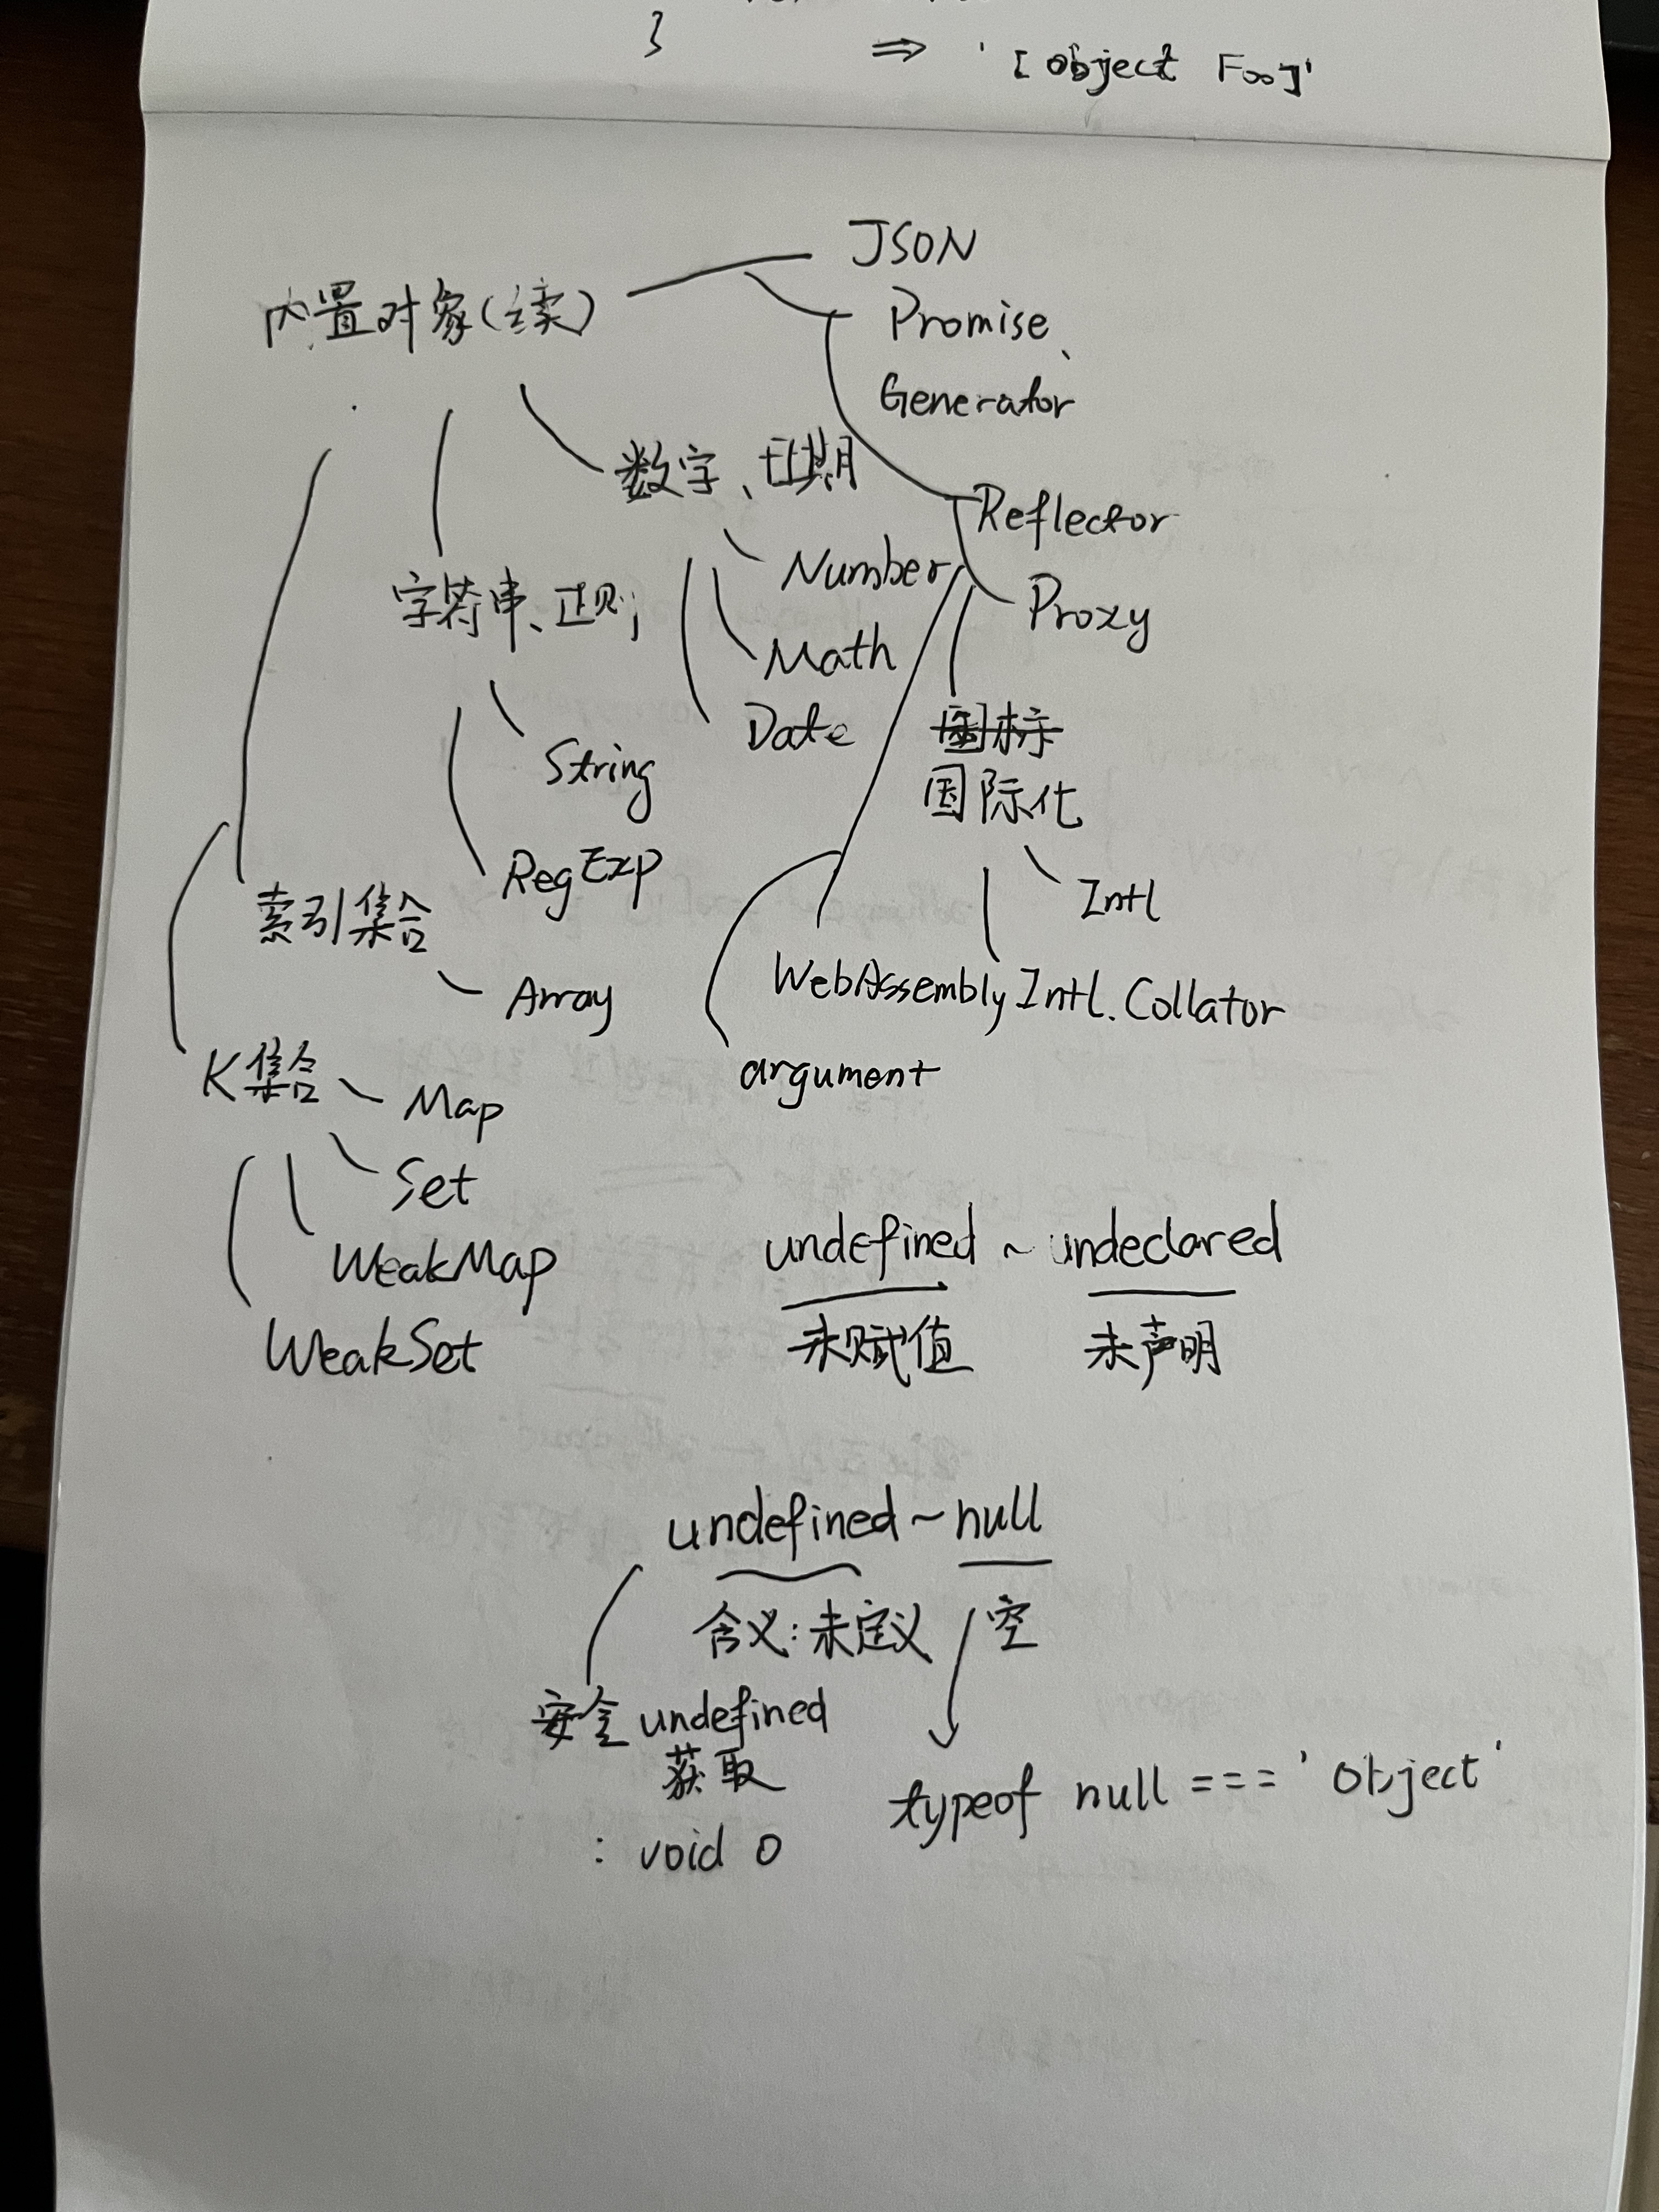 }
⇒ '[object Foo]'
JSON
内置对象(续)
Promise、
Generator
数字、日期
Reflector
Number
Proxy
字符串、正则
Math
Date
String
国际化
RegExp
Intl
索引集合
Array
WebAssembly
Intl.Collator
K集合
Map
argument
Set
WeakMap
WeakSet
undefined ~ undeclared
未赋值 未声明
undefined ~ null
含义:未定义 空
安全 undefined
获取
: void 0
typeof null === 'object'